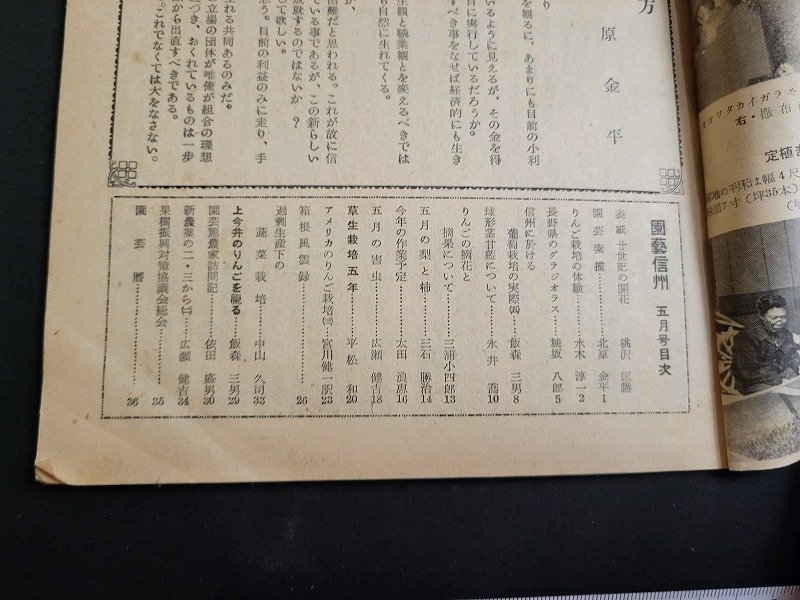 方
原金平
を観るに、あまりにも目前の小利
いるように見えるが、その金を得
目に実行しているだろうか。
すべき事をなせば経済的にも生き
観と職業観とを変えるべきでは
も自然に生れてくる。
困難だと思われる。これが故に信
ている事であるが、この新らしい
放説するのではないか ?
して欲しい。
思う。目前の利益のみに走り、手
れる共同あるのみだ。
立場の団体が唯俺が組合の理想
つき、おくれているものは一歩
から出直すべきである。
。これでなくては大をなさない。
園藝信州 五月号目次
表紙 廿世紀の開花 桃沢 匡勝
園芸楽描 北原 金平 1
りんご栽培の体験 水木 淳一 2
長野県のグラジオラス 穂坂 八郎 5
信州に於ける
葡萄栽培の実際㈣ 飯森 三男 8
球形茎甘藍について 永井 喬 10
りんごの摘花と
摘果について 三浦小四郎 13
五月の梨と柿 三石 勝治 14
今年の作業予定 太田 浪恵 16
五月の害虫 広瀬 健吉 18
草生栽培五年 平松 和 20
アメリカのりんご栽培㈢ 宮川健一訳 23
箱根風雲録 26
過剰生産下の
蔬菜栽培 中山 久司 33
上今井のりんごを観る 飯森 三男 29
園芸篤農家訪問記 依田 盛男 30
新農薬の二・三から㈡ 広瀬 健吉 34
果樹振興対策協議会総会 35
園芸暦 36
オオワタカイガラモ
右・撒布
定植
の平床は幅4尺
間7寸(坪35本)